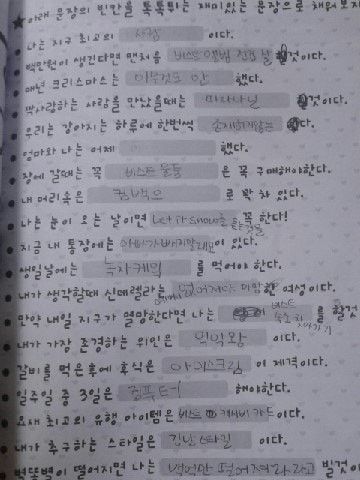 아래 문장의 빈칸을 톡톡튀는 재미있는 문장으로 채워보자
나는 지구 최고의 사람 이다.
백만원이 생긴다면 맨처음 비스트 앨범 전부 살 것이다.
매년 크리스마스는 아무것도 안 했다.
짝사랑하는 사람을 만났을때는 지나가닐 것이다.
우리는 강아지는 하루에 한번씩 존재하지않는 다.
엄마와 나는 어제 했다.
장에 갈때는 꼭 비스트 물들 은 꼭 구매해야한다.
내 머리속은 컴백으 로 꽉 차 있다.
나는 눈이 오는 날이면 Let it snow를 꼭 한다!
지금 내 통장에는 이 있다.
생일날에는 녹차케익 를 먹어야 한다.
내가 생각할때 신데렐라는 여성이다.
만약 내일 지구가 멸망한다면 나는 비스트 를 할것
내가 가장 존경하는 위인은 넉넉왕 이다.
갈비를 먹은후에 후식은 아이스크림 이 제격이다.
일주일 중 3일은 컴퓨터 해야한다.
요새 최고의 유행 아이템은 비스트 캐시비 카드 이다.
내가 추구하는 스타일은 강남스타일 이다.
별똥별이 떨어지면 나는 떨어져라라고 빌것이